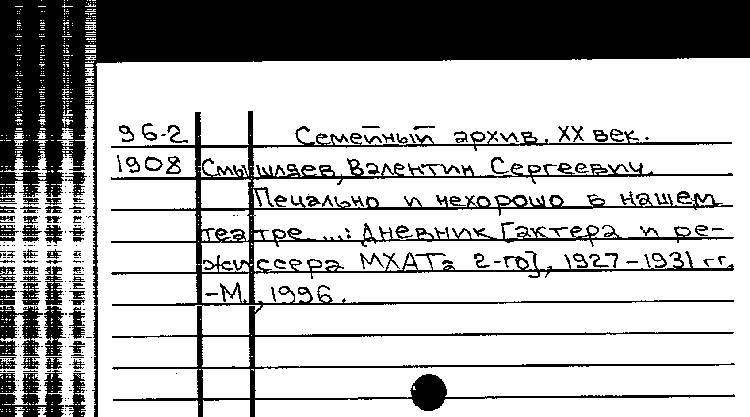 96-2 Семейный архив. XX век.
1908 Смышляев, Валентин Сергеевич.
Печально и нехорошо в нашем
театре...: Дневник [актера и ре-
жиссера МХАТа 2-го], 1927-1931 гг.
-М., 1996.